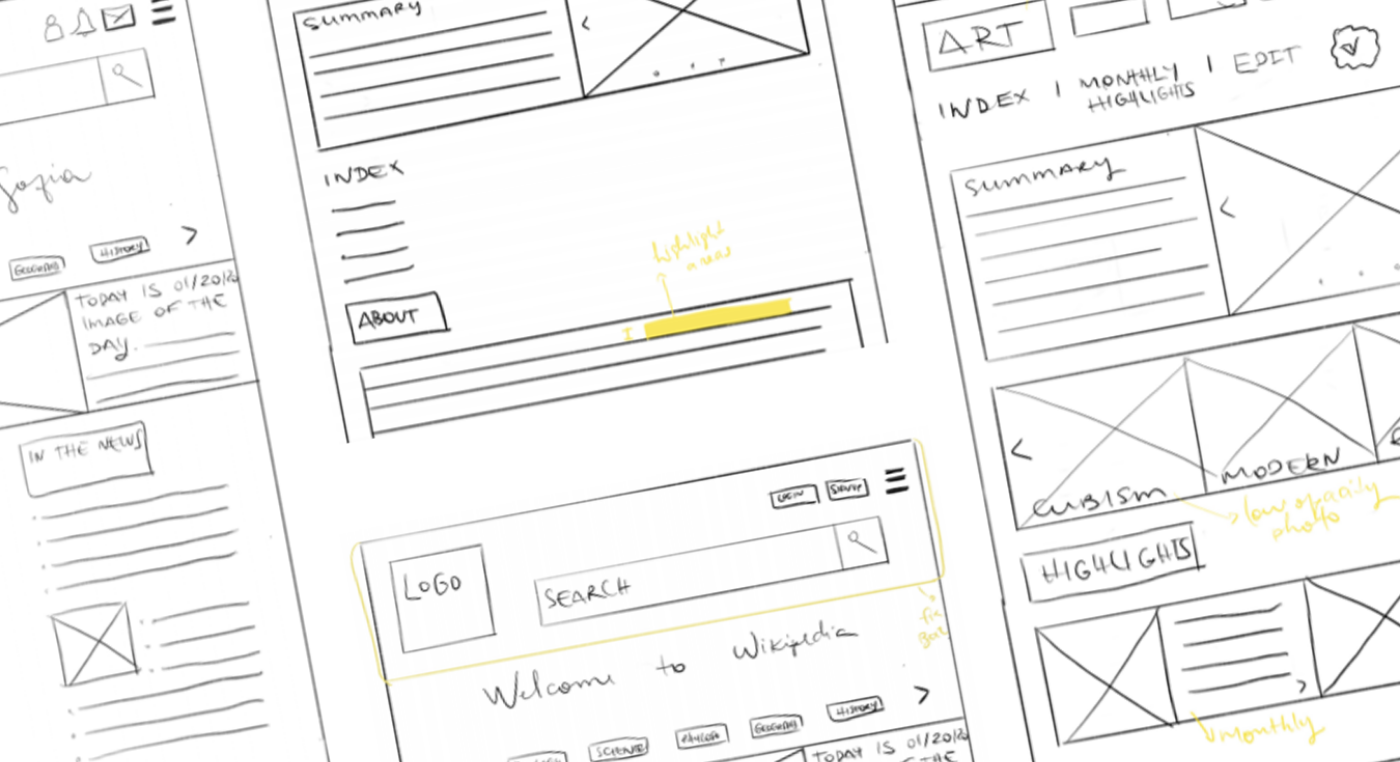 Sofia
GEOGRAPHY
HISTORY
TODAY IS 01/20/20
IMAGE OF THE
DAY.
IN THE NEWS
SUMMARY
INDEX
highlight
areas
I
ABOUT
LOGIN
SIGNUP
LOGO
SEARCH
fix
bar
Welcome to Wikipedia
SCIENCE
GEOGRAPHY
HISTORY
TODAY IS 01/20/20
OF THE
ART
INDEX | MONTHLY | EDIT
HIGHLIGHTS
SUMMARY
CUBISM
MODERN
low opacity
photo
HIGHLIGHTS
monthly